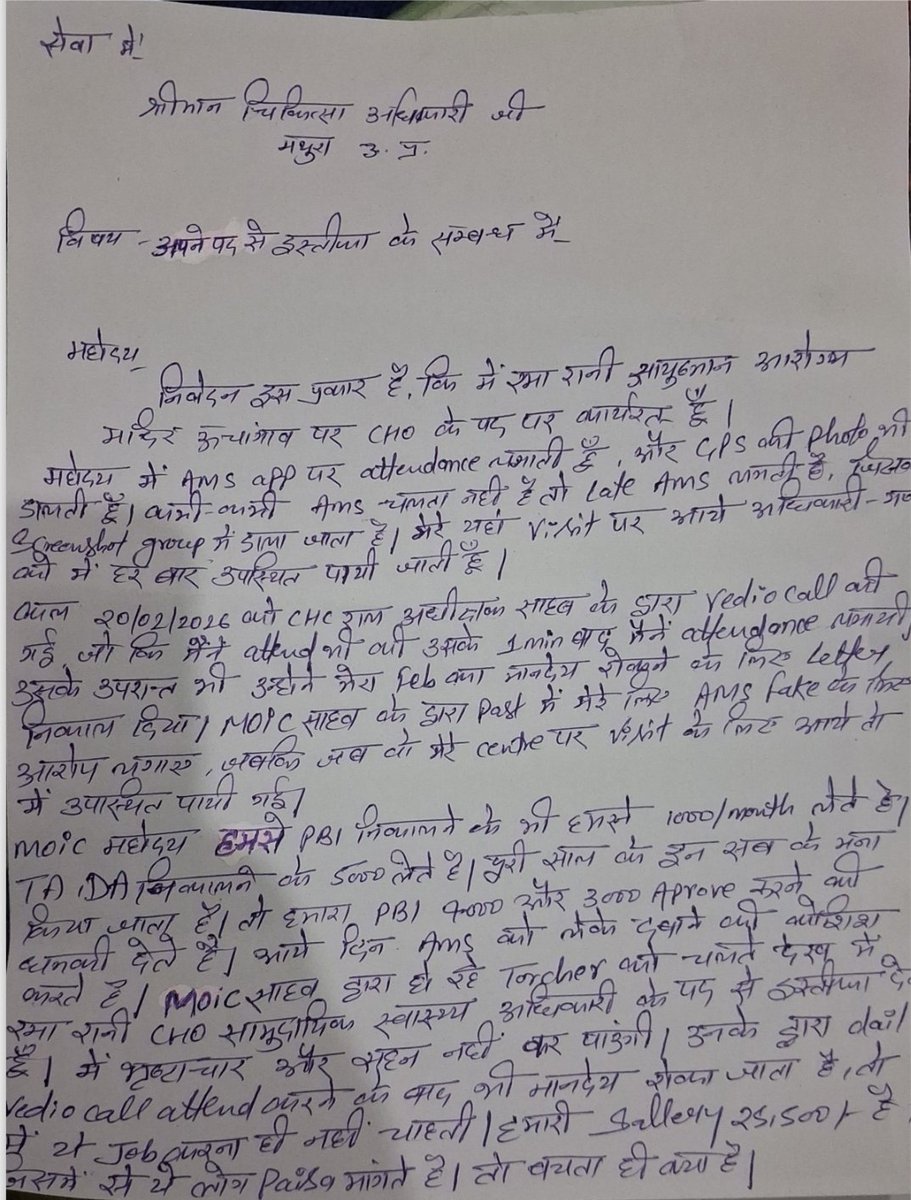 सेवा में
श्रीमान चिकित्सा अधिकारी जी
मथुरा उ. प्र.
विषय - अपने पद से इस्तीफा के सम्बन्ध में
महोदय
निवेदन इस प्रकार है, कि में रमा रानी आयुष्मान आरोग्य
मंदिर ऊचांगाव पर CHO के पद पर कार्यरत हूँ।
महोदय में AMS app पर attendance लगाती हूँ, और GPS की photo भी
डालती हूँ। कभी-कभी AMS चलता नही है तो late AMS लगती है,
Screenshot group में डाला जाता है। मेरे यहां Visit पर आये अधिकारी-गण
को में हर बार उपस्थित पायी जाती हूँ।
कल 20/02/2026 को CHC राल अधीक्षक साहब के द्वारा Vedio call की
गई जो कि मैंने attend भी की उसके 1 min बाद मैंने attendance लगायी
उसके उपरान्त भी उन्होने मेरा Feb का मानदेय रोकने के लिए letter
निकाल दिया। MOIC साहब के द्वारा Past में मेरे लिए AMS fake के लिए
आरोप लगाए, जबकि जब वो मेरे centre पर Visit के लिए आये तो
में उपास्थित पायी गई।
MOIC महोदय हमसे PBI निकालने के भी हमसे 1000/month लेते है।
TA, DA निकालने के 5000 लेते है। पूरी साल के इन सब के मना
किया जाता है। तो हमारा PBI 4000 और 3000 Aprove करने की
धमकी देते है। आये दिन AMS को लेके दबाने की कोशिश
करते है। MOIC साहब द्वारा हो रहे Torcher को चलते देख में
रमा रानी CHO सामुदायिक स्वास्थ्य अधिकारी के पद से इस्तीफा
हूँ। में भृष्टाचार और सहन नहीं कर पाउंगी। उनके द्वारा dail
Vedio call attend करने के बाद भी मानदेय रोका जाता है, तो
में ये Job करना ही नहीं चाहती। हमारी Sallery 25,500/- है
से ये लोग Paisa मांगते है। तो बचता ही क्या है।